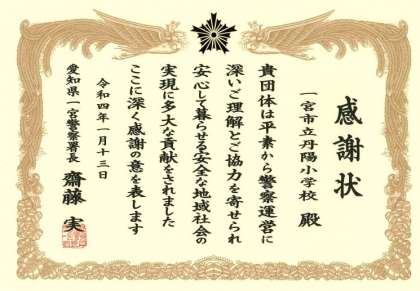 感謝状
一宮市立丹陽小学校 殿
貴団体は平素から警察運営に
深いご理解とご協力を寄せられ
安心して暮らせる安全な地域社会の
実現に多大な貢献をされました
ここに深く感謝の意を表します
令和四年一月十三日
愛知県一宮警察署長 齋藤 実